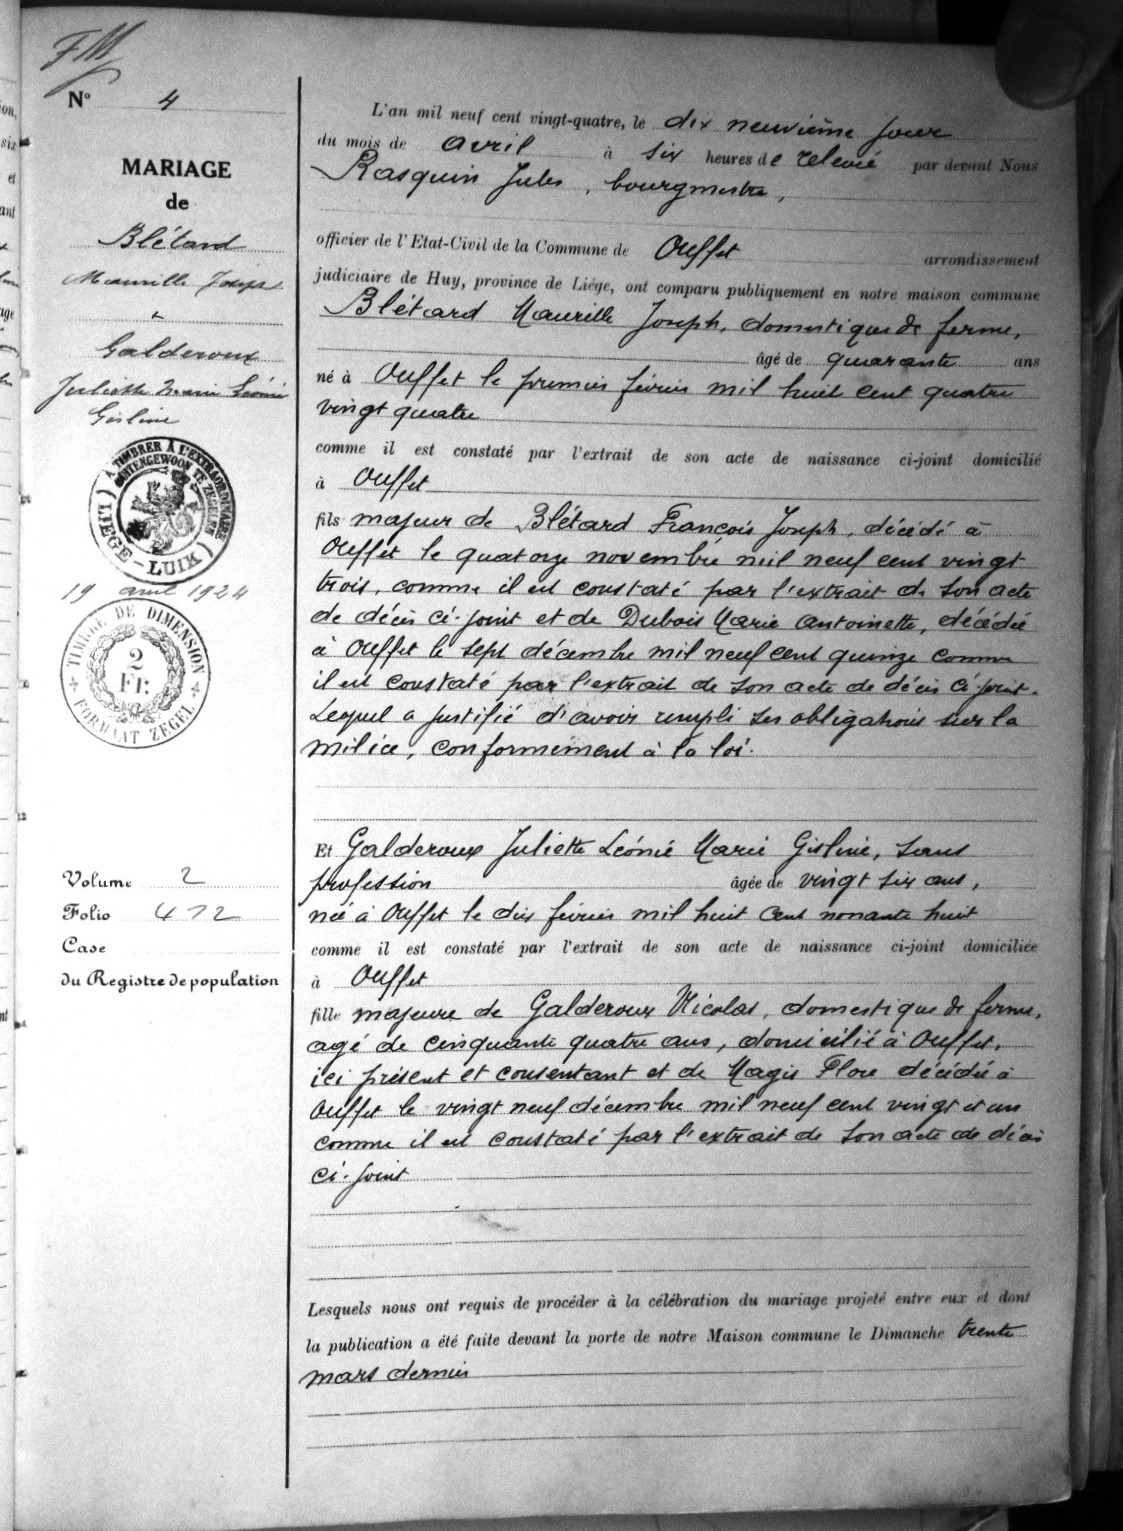 FM
N° 4
MARIAGE
de
Blétard
Maurille Joseph
&
Galderoux
Juliette Marie Léonie
Gisline
A TIMBRER À L'EXTRAORDINAIRE
BUITENGEWOON TE ZEGELEN
(LIÉGE - LUIK)
19 avril 1924
TIMBRE DE DIMENSION
2
Fr.
FORMAAT ZEGEL
Volume 2
Folio 472
Case
du Registre de population
L'an mil neuf cent vingt-quatre, le dix neuvième jour
du mois de avril à six heures de relevée par devant Nous
Rasquin Jules, bourgmestre,
officier de l'Etat-Civil de la Commune de Ouffet arrondissement
judiciaire de Huy, province de Liége, ont comparu publiquement en notre maison commune
Blétard Maurille Joseph, domestique de ferme,
âgé de quarante ans
né à Ouffet le premier février mil huit cent quatre
vingt quatre
comme il est constaté par l'extrait de son acte de naissance ci-joint domicilié
à Ouffet
fils majeur de Blétard François Joseph, décédé à
Ouffet le quatorze novembre mil neuf cent vingt
trois, comme il est constaté par l'extrait de son acte
de décès ci-joint et de Dubois Marie Antoinette, décédée
à Ouffet le sept décembre mil neuf cent quinze comme
il est constaté par l'extrait de son acte de décès ci-joint.
Lequel a justifié d'avoir rempli ses obligations sur la
milice, conformément à la loi.
Et Galderoux Juliette Léonie Marie Gisline, sans
profession âgée de vingt six ans,
née à Ouffet le dix février mil huit cent nonante huit
comme il est constaté par l'extrait de son acte de naissance ci-joint domiciliée
à Ouffet
fille majeure de Galderoux Nicolas, domestique de ferme,
agé de cinquante quatre ans, domicilié à Ouffet,
ici présent et consentant et de Magis Flore décédée à
Ouffet le vingt neuf décembre mil neuf cent vingt et un
comme il est constaté par l'extrait de son acte de décès
ci-joint
Lesquels nous ont requis de procéder à la célébration du mariage projeté entre eux et dont
la publication a été faite devant la porte de notre Maison commune le Dimanche trente
mars dernier